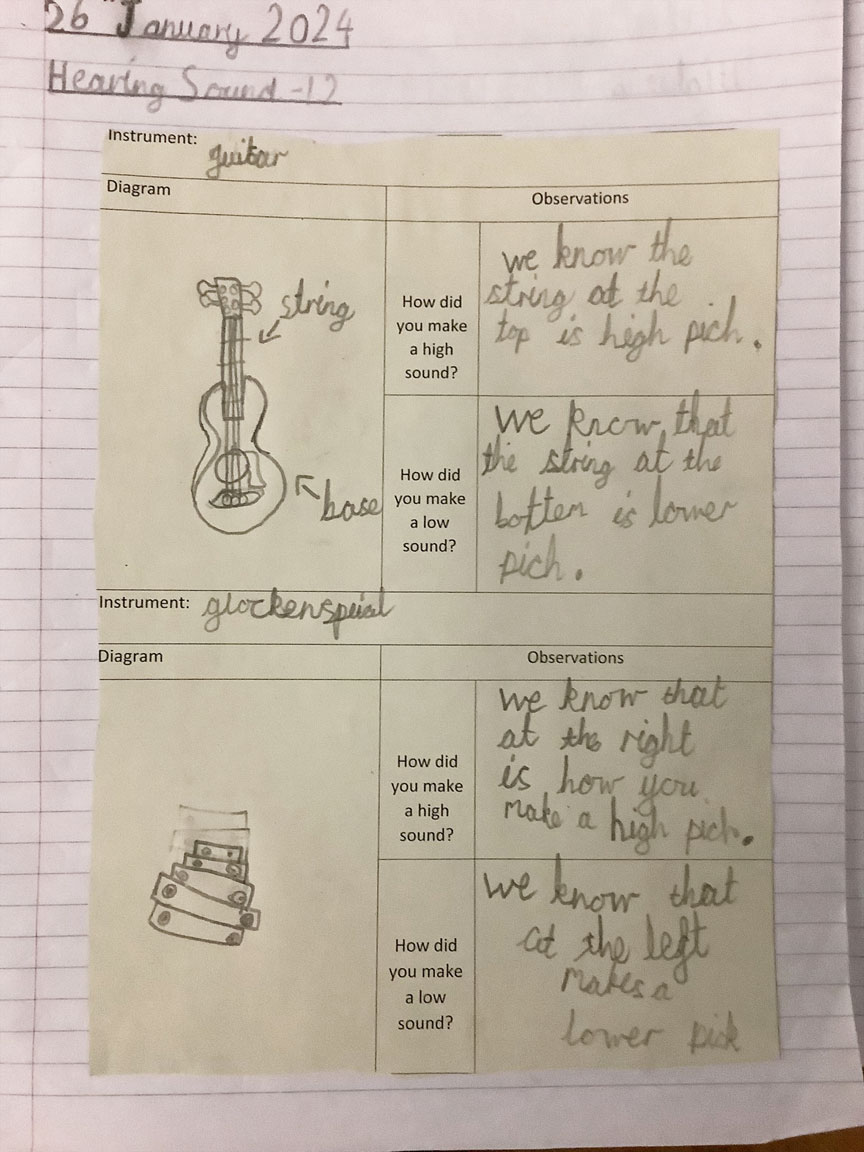 26 January 2024
Hearing Sound -12
Instrument: guitar
Diagram
Observations
string
base
How did
you make
a high
sound?
we know the
string at the
top is high pich.
How did
you make
a low
sound?
we know that
the string at the
bottem is lower
pich.
Instrument: glockenspeial
Diagram
Observations
How did
you make
a high
sound?
we know that
at the right
is how you
make a high pich.
How did
you make
a low
sound?
we know that
at the left
makes a
lower pick